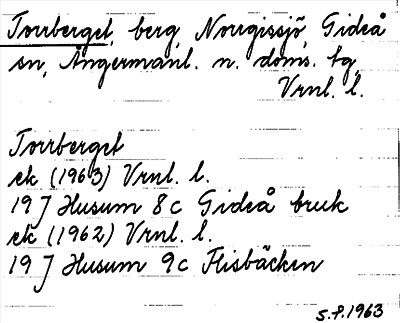 Torrberget, berg, Norrgissjö, Gideå
sn, Ångermanl. n. doms. tg,
Vrnl. l.
Torrberget
ek (1963) Vrnl. l.
19 J Husum 8c Gideå bruk
ek (1962) Vrnl. l.
19 J Husum 9c Flisbäcken
S.F. 1963